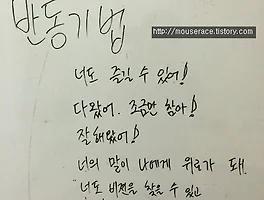 반동기법
http://mouserace.tistory.com
너도 즐길 수 있어!
다왔어. 조금만 참아!
잘해왔어!
너의 말이 나에게 위로가 돼.
"너도 비전을 찾을 수 있고